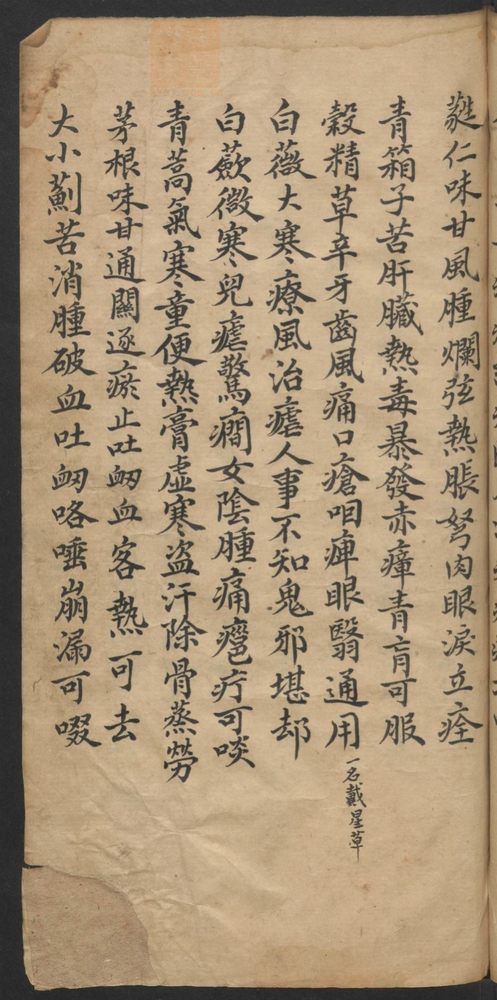 蕤仁味甘風腫爛弦熱脹弩肉眼淚立痊
青箱子苦肝臟熱毒暴發赤瘴青盲可服
穀精草辛牙齒風痛口瘡咽痺眼翳通用一名戴星草
白薇大寒療風治瘧人事不知鬼邪堪却
白蘞微寒兒瘧驚癎女陰腫痛癰疔可啖
青蒿氣寒童便熬膏虛寒盗汗除骨蒸勞
茅根味甘通關逐瘀止吐衂血客熱可去
大小薊苦消腫破血吐衂咯唾崩漏可啜